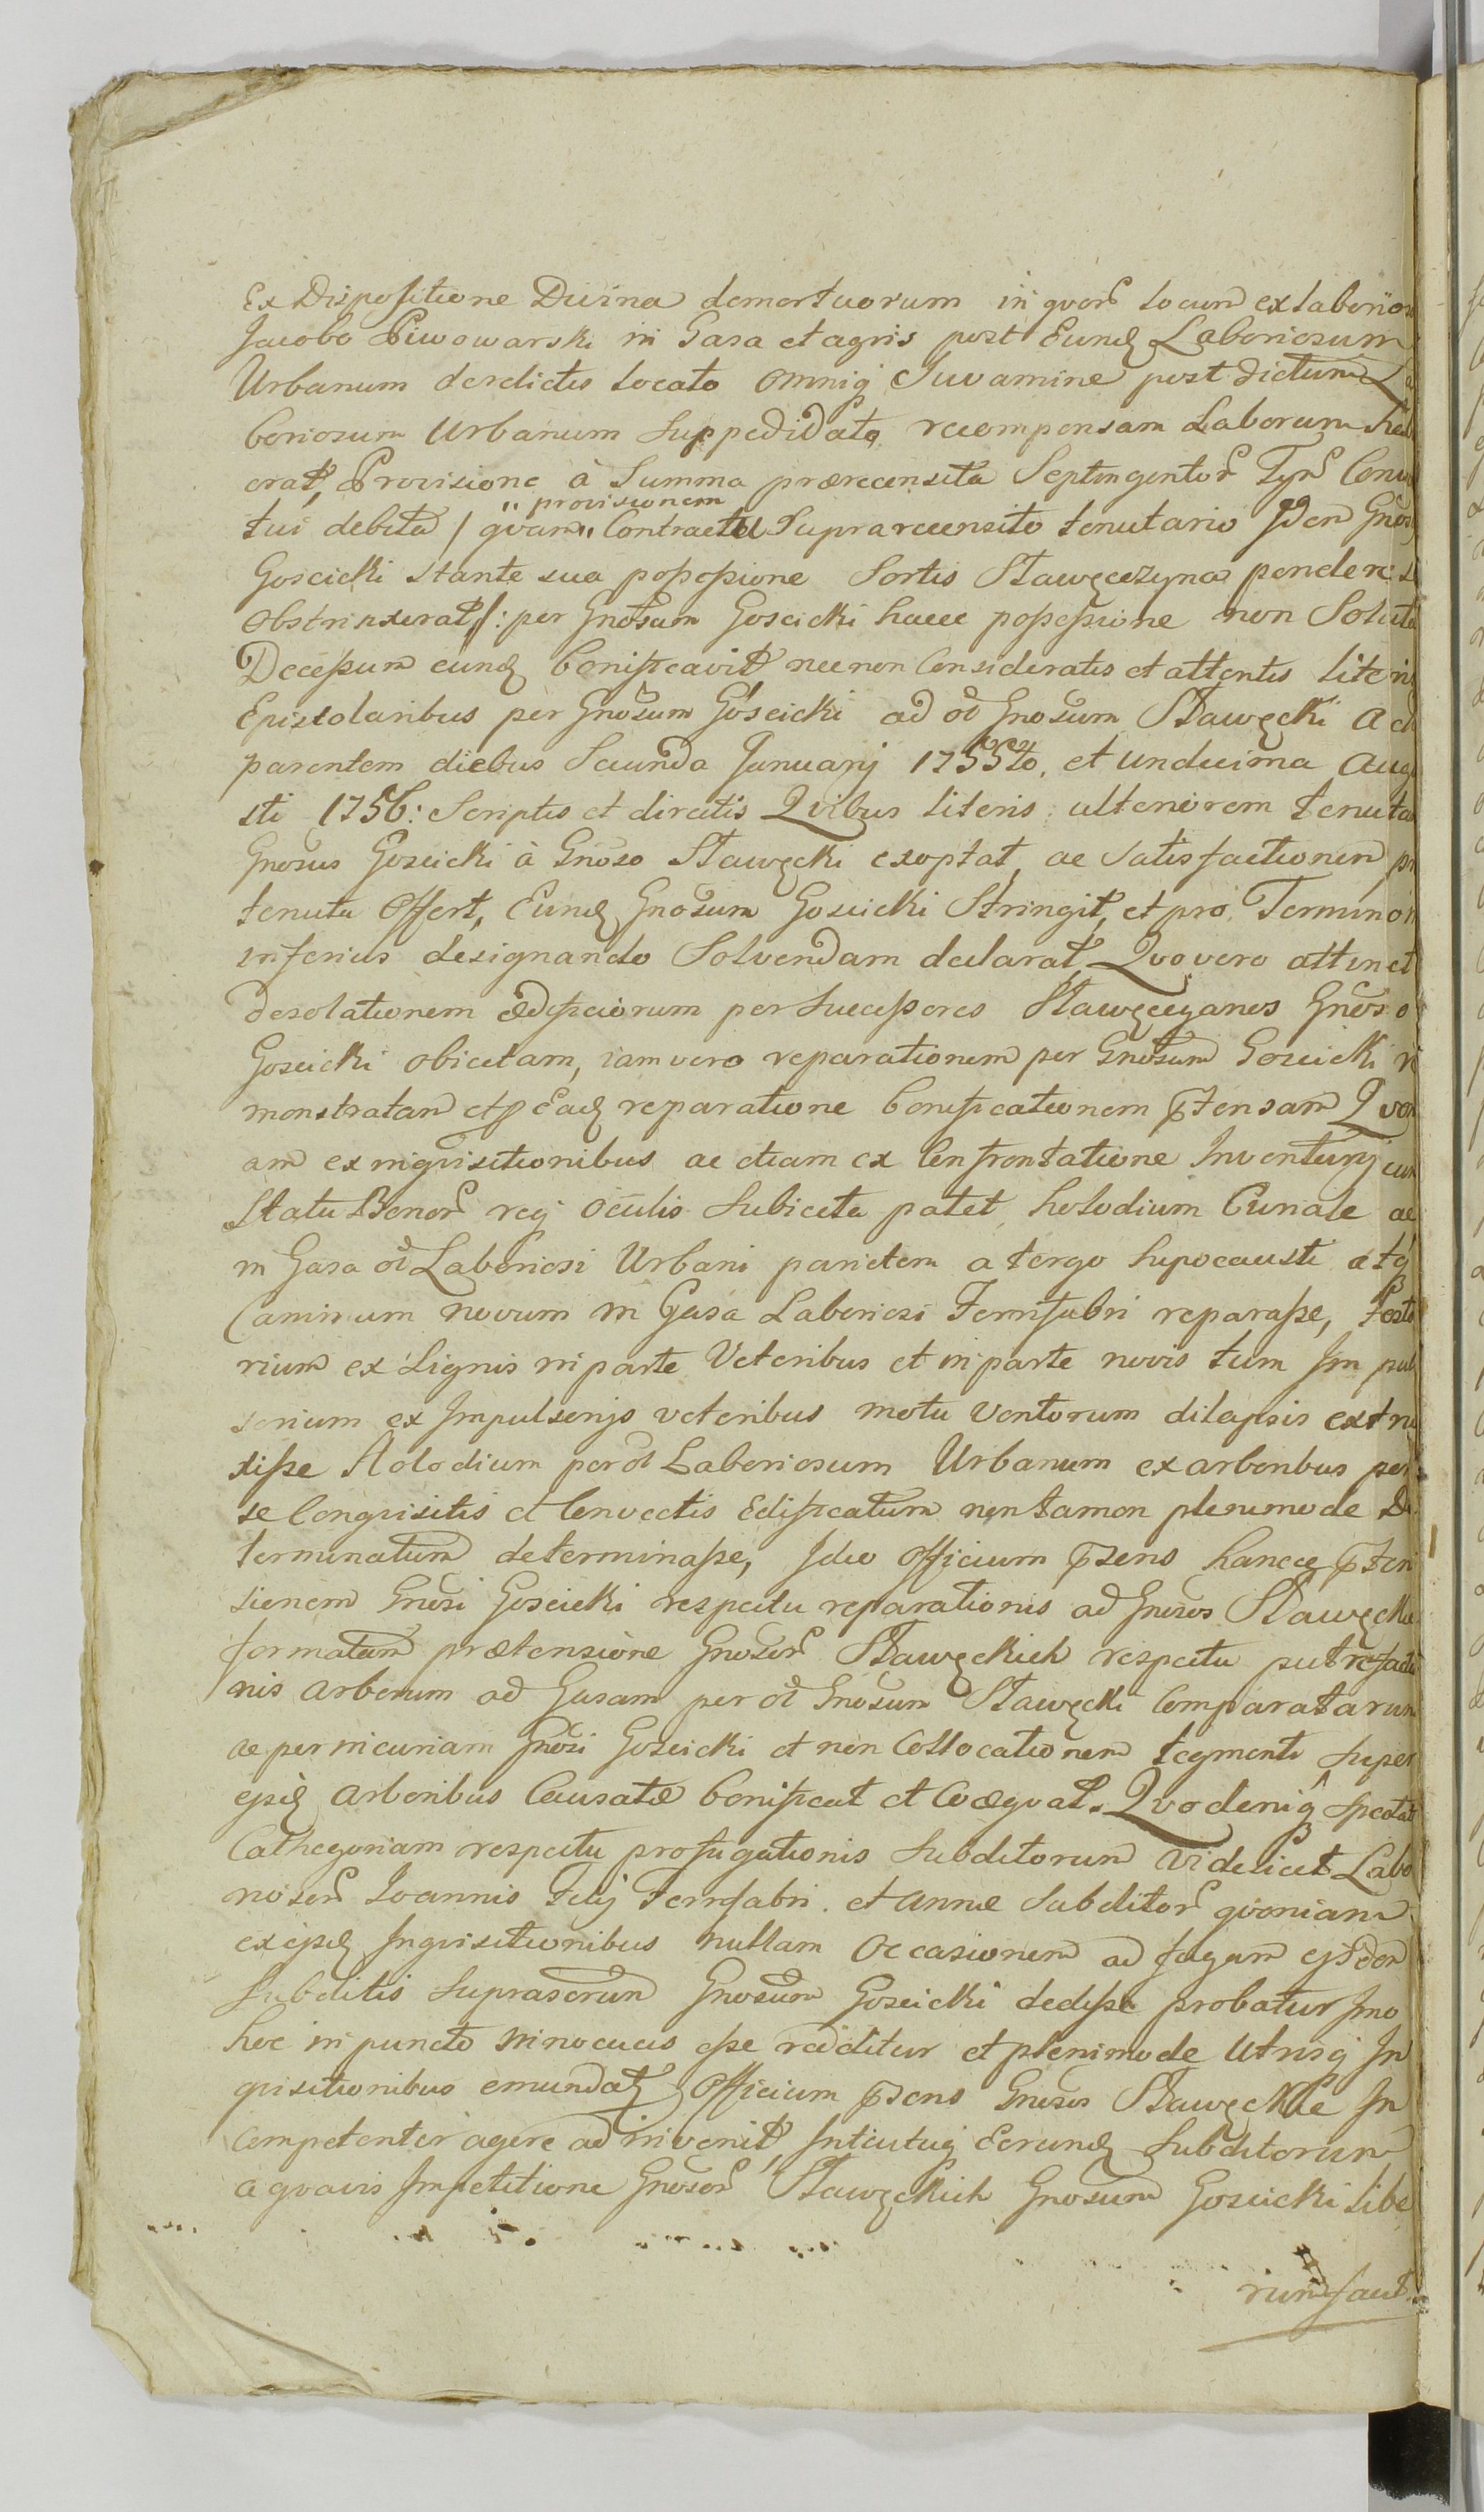 Ex Dispositione Divina demortuorum in quor locum ex laborios
Jacobo Piwowarski in Casa et agris post Eund Laboriosum
Urbanum derelictis locato omniq Juvamine post dictum La
boriosum Urbanum Suppedidato, recompensam Laborum
erat, Provisione à Summa præcensita Septingentor Tynf Conven
tui debita / quam „ provisionem „ Contractu Suprarecensito tenutario Idem Gnosus
Goscicki stante sua possessione Sortis Stawęczyna pendere se
obstrinxerat /: per Gnosum Goscicki hacce possessione non Soluta
Decessum eund bonificavit necnon Consideratis et attentis literis
Epistolaribus per Gnosum Góscicki ad od Gnosum Stawęcki Ac
parentem diebus Secunda Januarij 1755to, et undecima Augu
sti 1756: Scriptis et directis Quibus literis ulteriorem tenutam
Gnosus Goscicki à Gnoso Stawęcki exoptat, ac Satisfactionem pro
tenuta Offert, Eund Gnosum Goscicki Stringit, et pro Termino in
inferius designando Solvendam declarat Quo vero attinet
desolationem ædificiorum per Successores Stawęccyanos Gnoso
Goscicki obiectam, iam vero reparationem per Gnosum Goscicki re
monstratam et p Ead reparatione bonificationem ptensam Quon
iam ex inquisitionibus ac etiam ex Confrontatione Inventarij cum
Statu Bonor rej oculis Subiecta patet, holodium Curiale ac
in Casa od Laboriosi Urbani parietem a tergo hipocausti atq
Caminum novum in Casa Laboriosi Ferrifabri reparasse, testo
rium ex Lignis in parte Veteribus et in parte novis tum Im pul
sorium ex Impulsorijs veteribus motu Ventorum dilapsis extru
xisse Alodium per od Laboriosum Urbanum ex arboribus per
se Conquisitis et Convectis Edificatum non tamen plenimode De
terminatum determinasse, Ideo Officium psens hancce pten
sionem Gnosi Goscicki respectu reparationis ad Gnosos Stawęckie
formatam prætensione Gnosor Stawęckich respectu putrefactio
nis arborum ad Casam per od Gnosum Stawęcki Comparatarum
ac per incuriam Gnosi Goscicki et non Collocationem tegmenti super
ejsd arboribus Causatæ bonificat et Coæquat. Quo deniq spectat
Cathegoriam respectu profugationis Subditorum Videlicet Labo
riosor Joannis Filij Ferrifabri et Annæ Subditor quoniam
ex ijsd Inquisitionibus nullam Occasionem ad fugam ejsdem
Subditis Suprascrum Gnosum Goscicki dedisse probatur Imo
hoc in puncto innocuus esse redditur et plenimode Utrisq In
quisitionibus emundat, Officium psens Gnosos Stawęckie In
competenter agere ad invenit, Intuituq Eorund Subditorum
a quavis Impetitione Gnosor Stawęckich Gnosum Goscicki libe
rum facit.